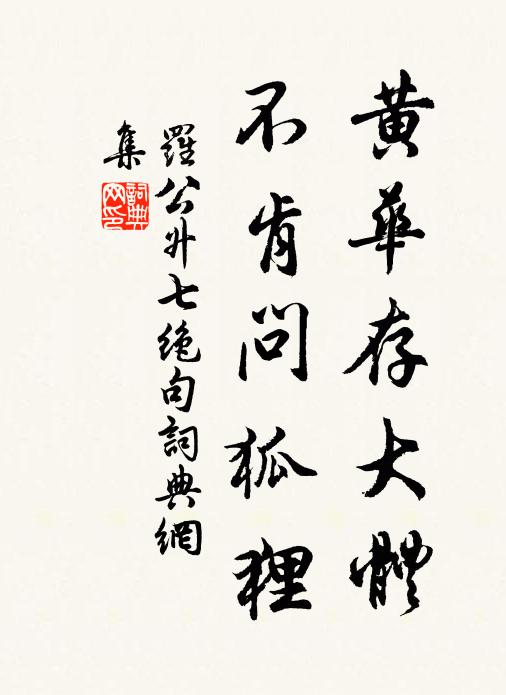 黃華存大體
不肯問狐狸
羅公升七絕句詞典網
集
詞典网印